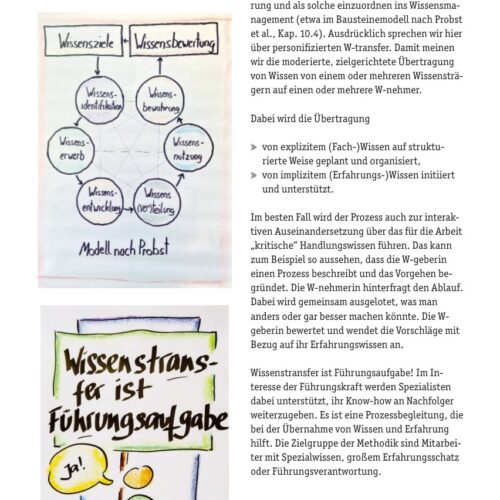 Wissensziele
Wissensbewertung
Wissens-
identifikation
Wissens-
bewahrung
Wissens-
erwerb
Wissens-
nutzung
Wissens-
entwicklung
Wissens
(ver)teilung
Modell nach Probst
Wissenstrans-
fer ist
Führungsaufgabe
Ja!
rung und als solche einzuordnen ins Wissensma-
nagement (etwa im Bausteinemodell nach Probst
et al., Kap. 10.4). Ausdrücklich sprechen wir hier
über personifizierten W-transfer. Damit meinen
wir die moderierte, zielgerichtete Übertragung
von Wissen von einem oder mehreren Wissensträ-
gern auf einen oder mehrere W-nehmer.
Dabei wird die Übertragung
» von explizitem (Fach-)Wissen auf struktu-
rierte Weise geplant und organisiert,
» von implizitem (Erfahrungs-)Wissen initiiert
und unterstützt.
Im besten Fall wird der Prozess auch zur interak-
tiven Auseinandersetzung über das für die Arbeit
„kritische" Handlungswissen führen. Das kann
zum Beispiel so aussehen, dass die W-geberin
einen Prozess beschreibt und das Vorgehen be-
gründet. Die W-nehmerin hinterfragt den Ablauf.
Dabei wird gemeinsam ausgelotet, was man
anders oder gar besser machen könnte. Die W-
geberin bewertet und wendet die Vorschläge mit
Bezug auf ihr Erfahrungswissen an.
Wissenstransfer ist Führungsaufgabe! Im In-
teresse der Führungskraft werden Spezialisten
dabei unterstützt, ihr Know-how an Nachfolger
weiterzugeben. Es ist eine Prozessbegleitung, die
bei der Übernahme von Wissen und Erfahrung
hilft. Die Zielgruppe der Methodik sind Mitarbei-
ter mit Spezialwissen, großem Erfahrungsschatz
oder Führungsverantwortung.